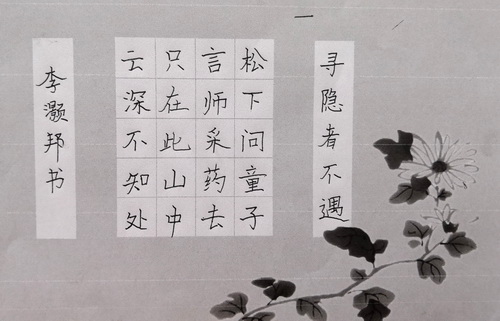 寻隐者不遇
松下问童子
言师采药去
只在此山中
云深不知处
李灏邦书